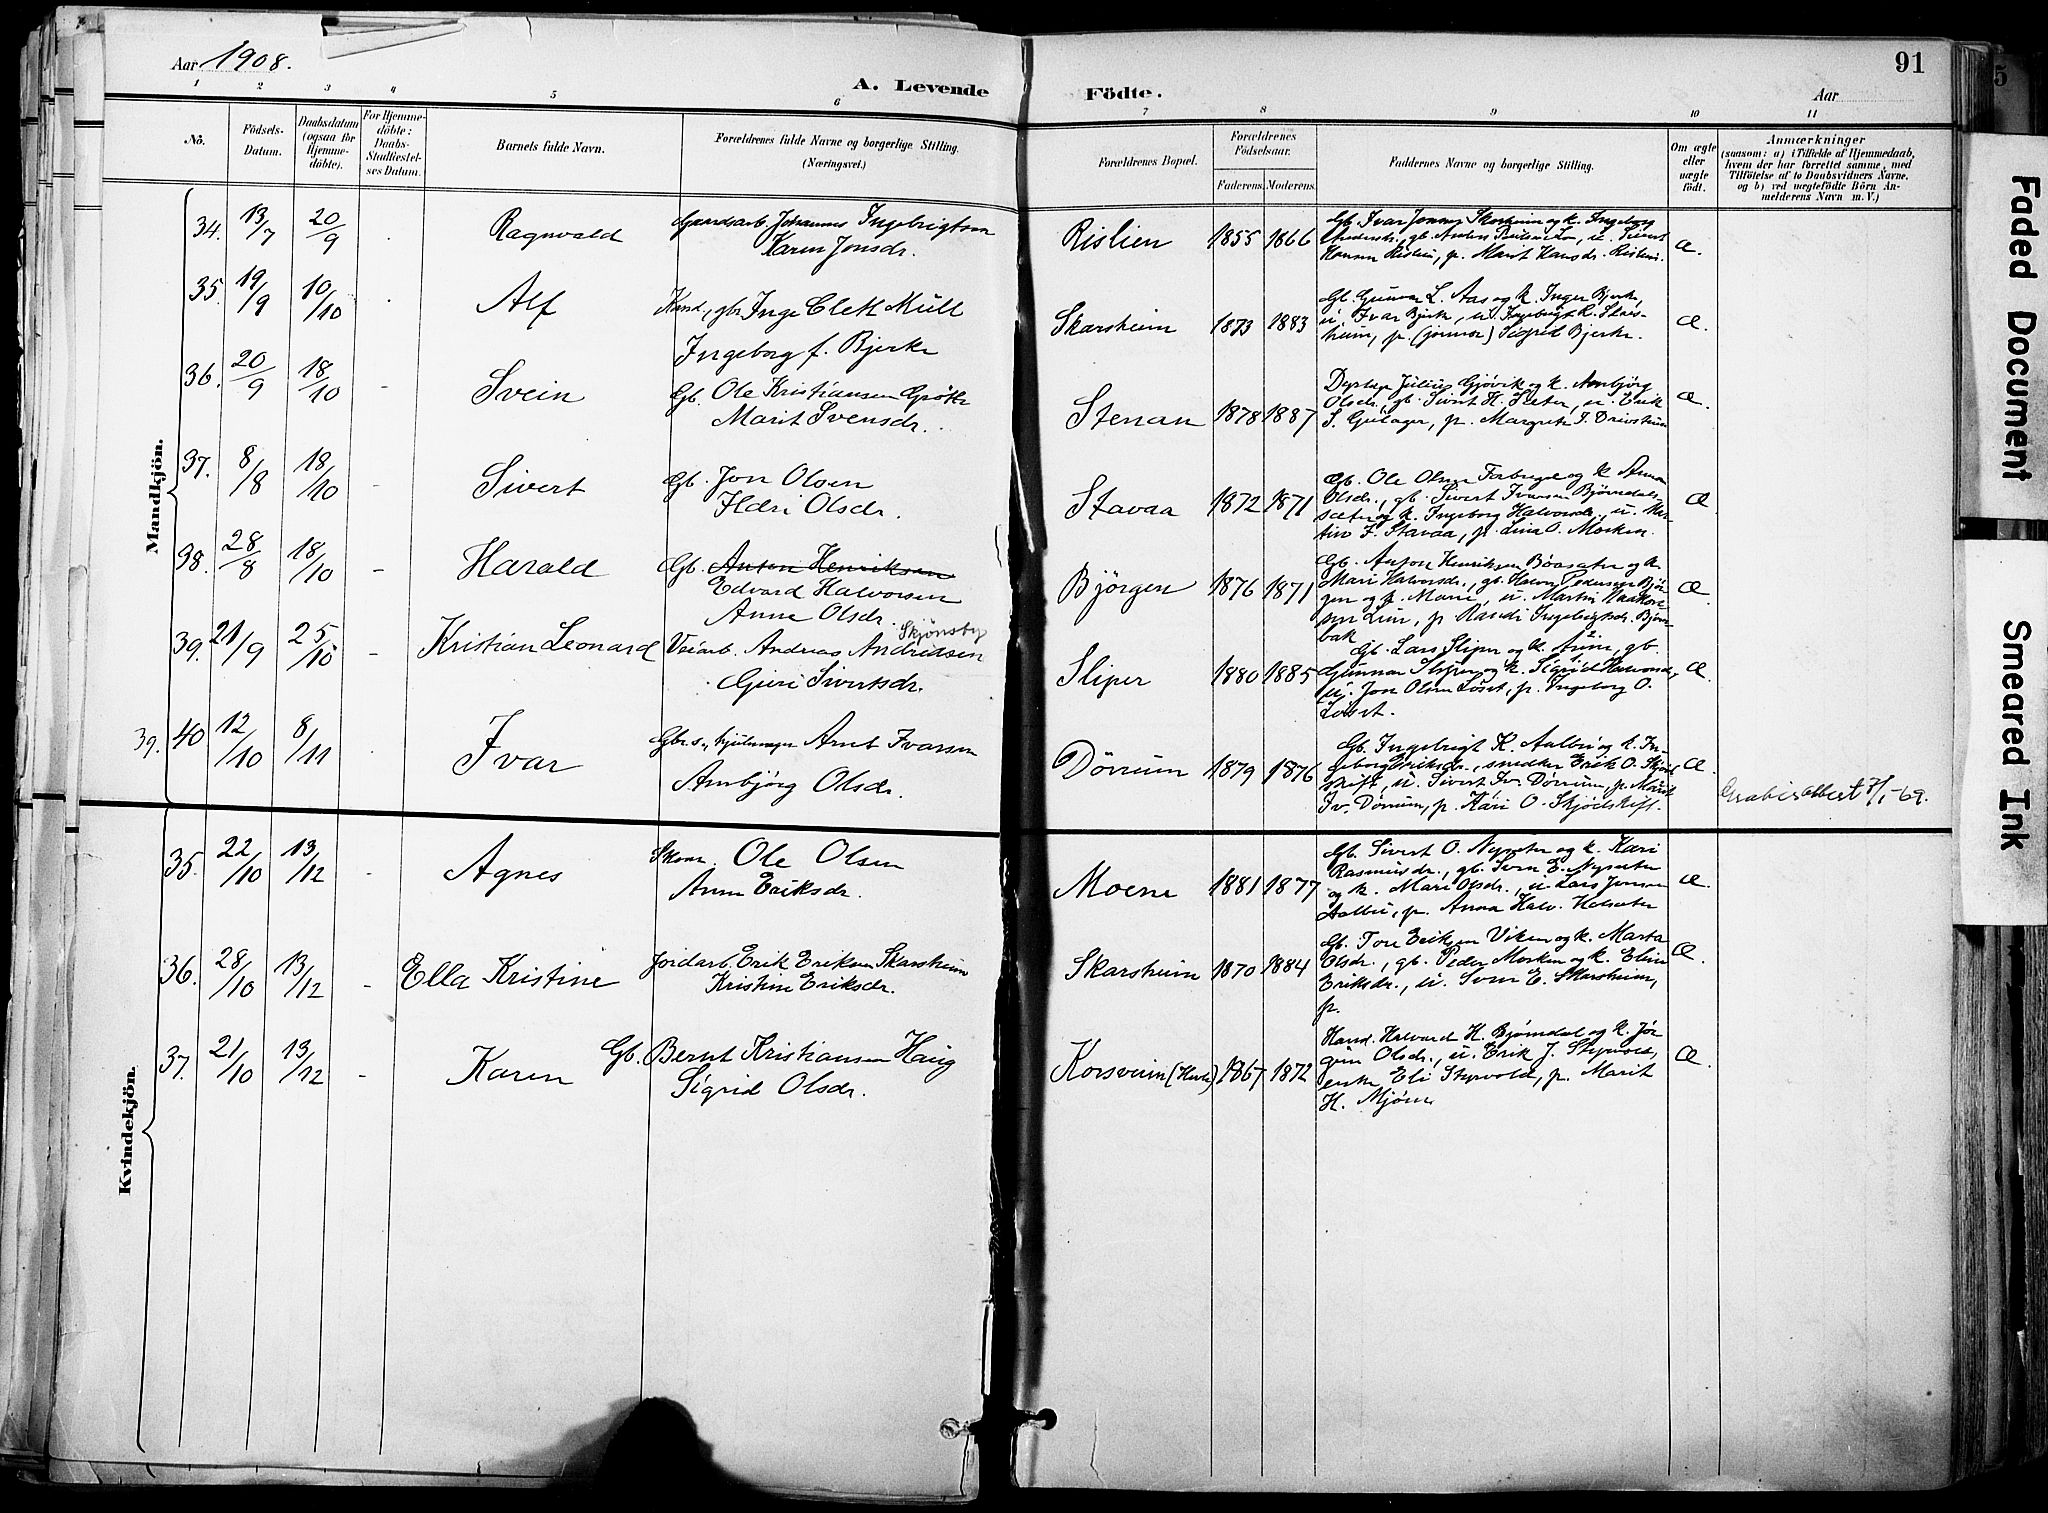 Aar 1908.
A. Levende Födte.
Aar
91
5
1 2 3 4 5 6 7 8 9 10 11
No.
Födsels-Datum.
Daabsdatum (ogsaa for Hjemmedöbte).
For Hjemmedöbte: Daabs-Stadfæstelses Datum.
Barnets fulde Navn.
Forældrenes fulde Navne og borgerlige Stilling. (Næringsvei.)
Forældrenes Bopæl.
Forældrenes Födselsaar.
Faderens. Moderens.
Faddernes Navne og borgerlige Stilling.
Om ægte eller uægte födt.
Anmærkninger
(saasom: a) i Tilfælde af Hjemmedaab,
hvem der har forrettet samme, med
Tilföielse af to Daabsvidners Navne.
og b) ved uægtefödte Börn An-
melderens Navn m. V.)
Mandkjön.
34. 13/7 20/9 Ragnvald
Gaardsarb. Johannes Ingebrigtsen
Karen Jonsdr.
Rislien 1855 1866
Gb. Ivar Jonsen Skarsheim og k. Ingeborg
Hansen Rislien, p. Marit Hansdr. Rislien.
Æ.
35. 19/9 10/10 Alf
Kand., gbr. Inge Clek Müll
Ingeborg f. Bjerke
Skarsheim 1873 1883
Gb. Gunnar L. Aas og k. Inger Bjerke,
u. Ivar Bjerk, u. Ingebrigt R. Skars-
heim, p. (jomfru) Sigrid Bjerke.
Æ.
36. 20/9 18/10 - Svein
Gb. Ole Kristiansen Grötte
Marit Svensdr.
Stenan 1878 1887
Julius Gjøvik og k. Annbjörg
Olsdr., gb. Sivert H. Sæter, u. Erik
S. Gulager, p. Margrete I. Drivstuen
Æ.
37. 8/8 18/10 - Sivert
Gb. Jon Olsen
Ildri Olsdr.
Stavaa 1872 1871
Gb. Ole Olsen Forbregd og k. Anne
Olsdr., gb. Sivert Ivarsen Bjørndals-
sæter og k. Ingeborg Halvorsdr., u. Mar-
tin F. Stavaa, p. Lina O. Morken.
Æ
38. 28/8 18/10 - Harald
Gb. Anton Henriksen
Edvard Halvorsen
Anne Olsdr.
Björgen 1876 1871
Gb. Anton Henriksen Böasæter og k.
Mari Halvorsdr., gb. Halvor Pedersen Bjør-
gen og k. Marie, u. Martin Haakon-
sen Lien, p. Randi Ingebrigtsdr. Bjørn-
bak
Æ.
39. 21/9 25/10 - Kristian Leonard
Veiarb. Andreas Andridsen Skjönsby
Guri Sivertsdr.
Sliper 1880 1885
Gb. Lars Sliper og k. Anne, gb.
Gunnar Sliper og k. Sigrid Halvorsdr.,
u. Jon Olsen Løset, p. Ingeborg O.
Løset.
Æ.
39. 40 12/10 8/11 Ivar
Arnt Ivarsen
Annbjörg Olsdr.
Dörrum 1879 1876
Gb. Ingebrigt K. Aalbu og k. In-
geborg Eriksdr., snedker Erik O. Skjöd-
skift, u. Sivert Iv. Dörrum, p. Marit
Iv. Dörrum, p. Kari O. Skjödskift.
Æ.
7/1-69.
Kvindekjön.
35. 22/10 13/12 - Agnes
Skom. Ole Olsen
Anne Eriksdr.
Moene 1881 1877
Gb. Sivert O. Nysæter og k. Kari
Rasmusdr., gb. Sven E. Nysæter
og k. Mari Olsdr., u. Lars Jonsen
Aalbu, p. Anna Halv. Halsæter
Æ.
36. 28/10 13/12 - Ella Kristine
Jordarb. Erik Eriksen Skarsheim
Kristine Eriksdr.
Skarsheim 1870 1884
Gb. Tore Eriksen Viken og k. Marta
Olsdr., gb. Peder Morken og k. Elin
Eriksdr., u. Sven E. Skarsheim,
p.
Æ.
37. 21/10 13/12 - Karen
Gb. Bernt Kristiansen Haug
Sigrid Olsdr.
Korsveien 1867 1872
Hand. Halvard H. Bjørndal og k. Jør-
gine Olsdr., u. Erik J. Styrvold,
enke Eli Styrvold, p. Marit
H. Mjøen
Æ.
Faded Document
Smeared Ink